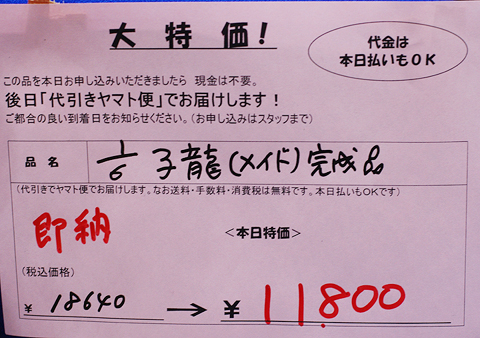 大特価!
代金は
本日払いもOK
この品を本日お申し込みいただきましたら 現金は不要。
後日「代引きヤマト便」でお届けします!
ご都合の良い到着日をお知らせください。(お申し込みはスタッフまで)
品名 1/6 子龍(メイド)完成品
(代引きでヤマト便でお届けします。なお送料・手数料・消費税は無料です。本日払いもOKです)
即納 <本日特価>
(税込価格)
¥ 18640 → ¥ 11,800